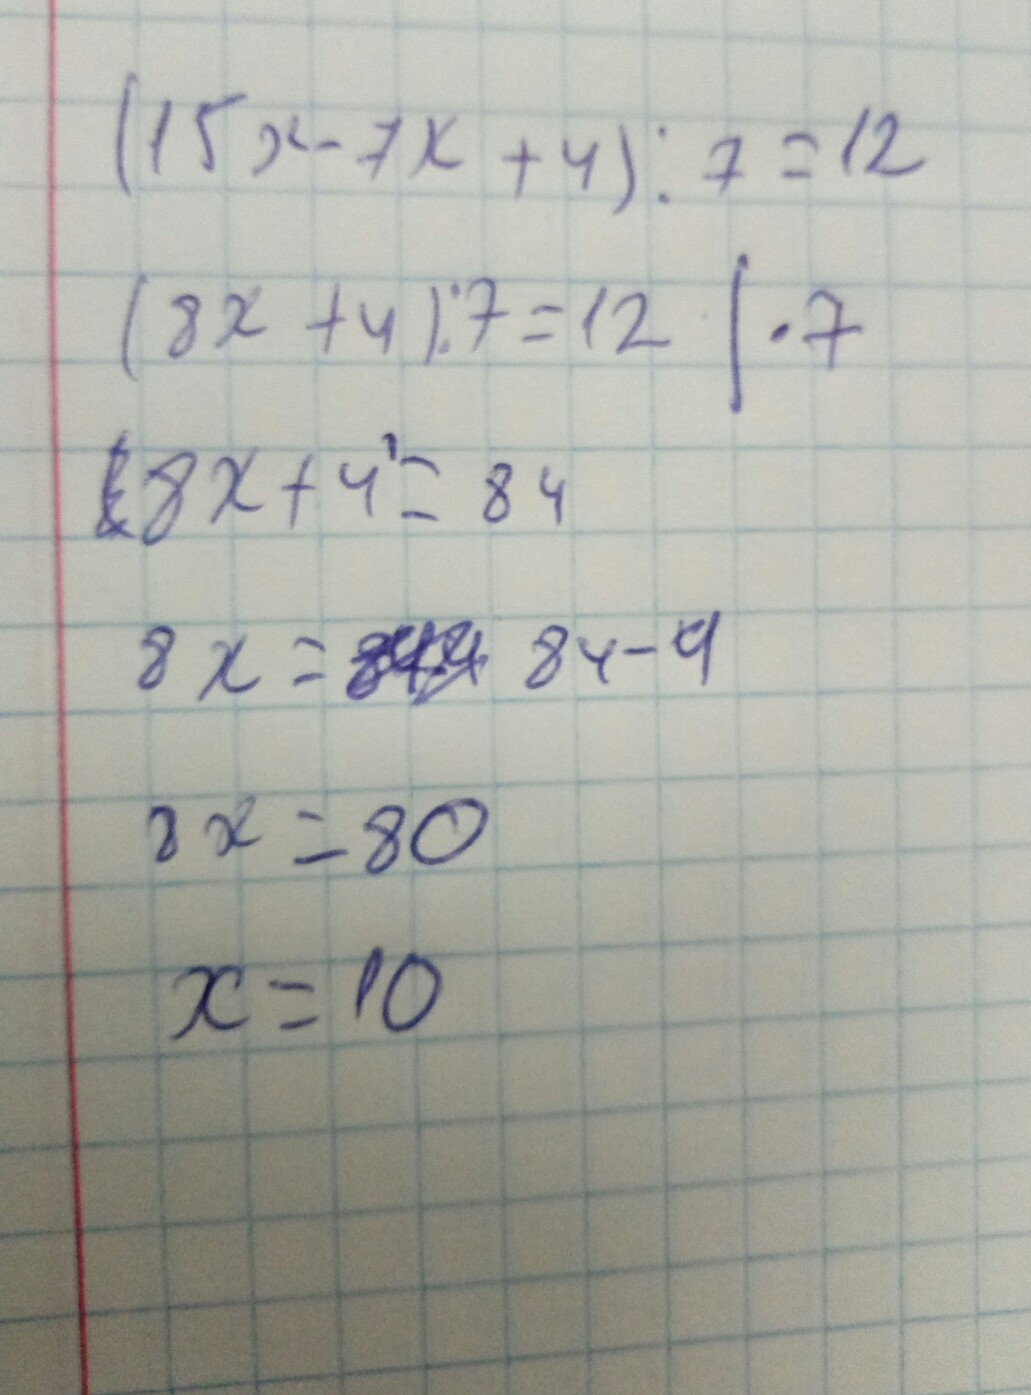 (15x-7x+4):7=12
(8x+4):7=12 | ·7
8x+4=84
8x= 84-4
8x=80
x=10